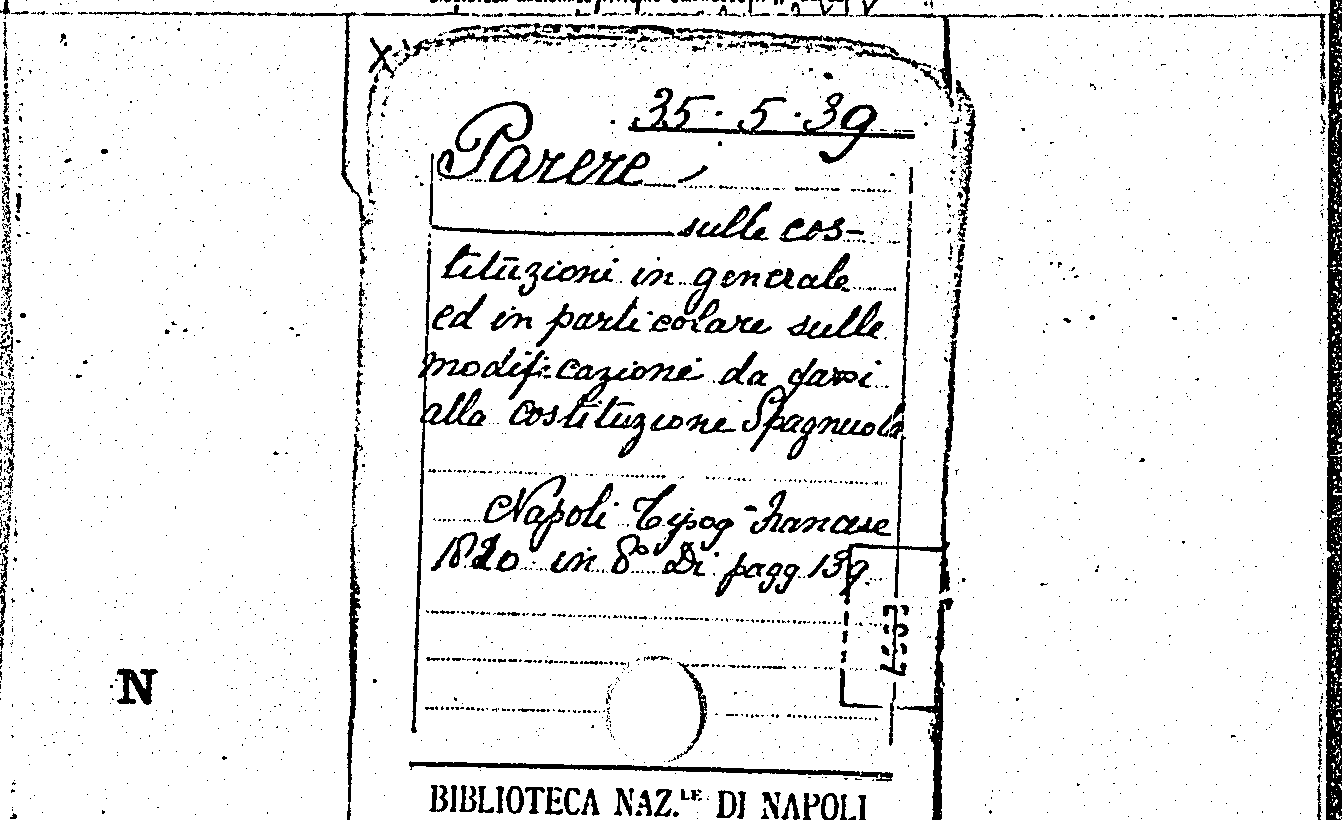 35.5.39
Parere
sulle cos-
tituzioni in generale
ed in particolare sulle
modificazione da darsi
alla costituzione Spagnuola
Napoli Tipog Francese
1820 in 8° Di pagg 139
N
BIBLIOTECA NAZ.LE DI NAPOLI